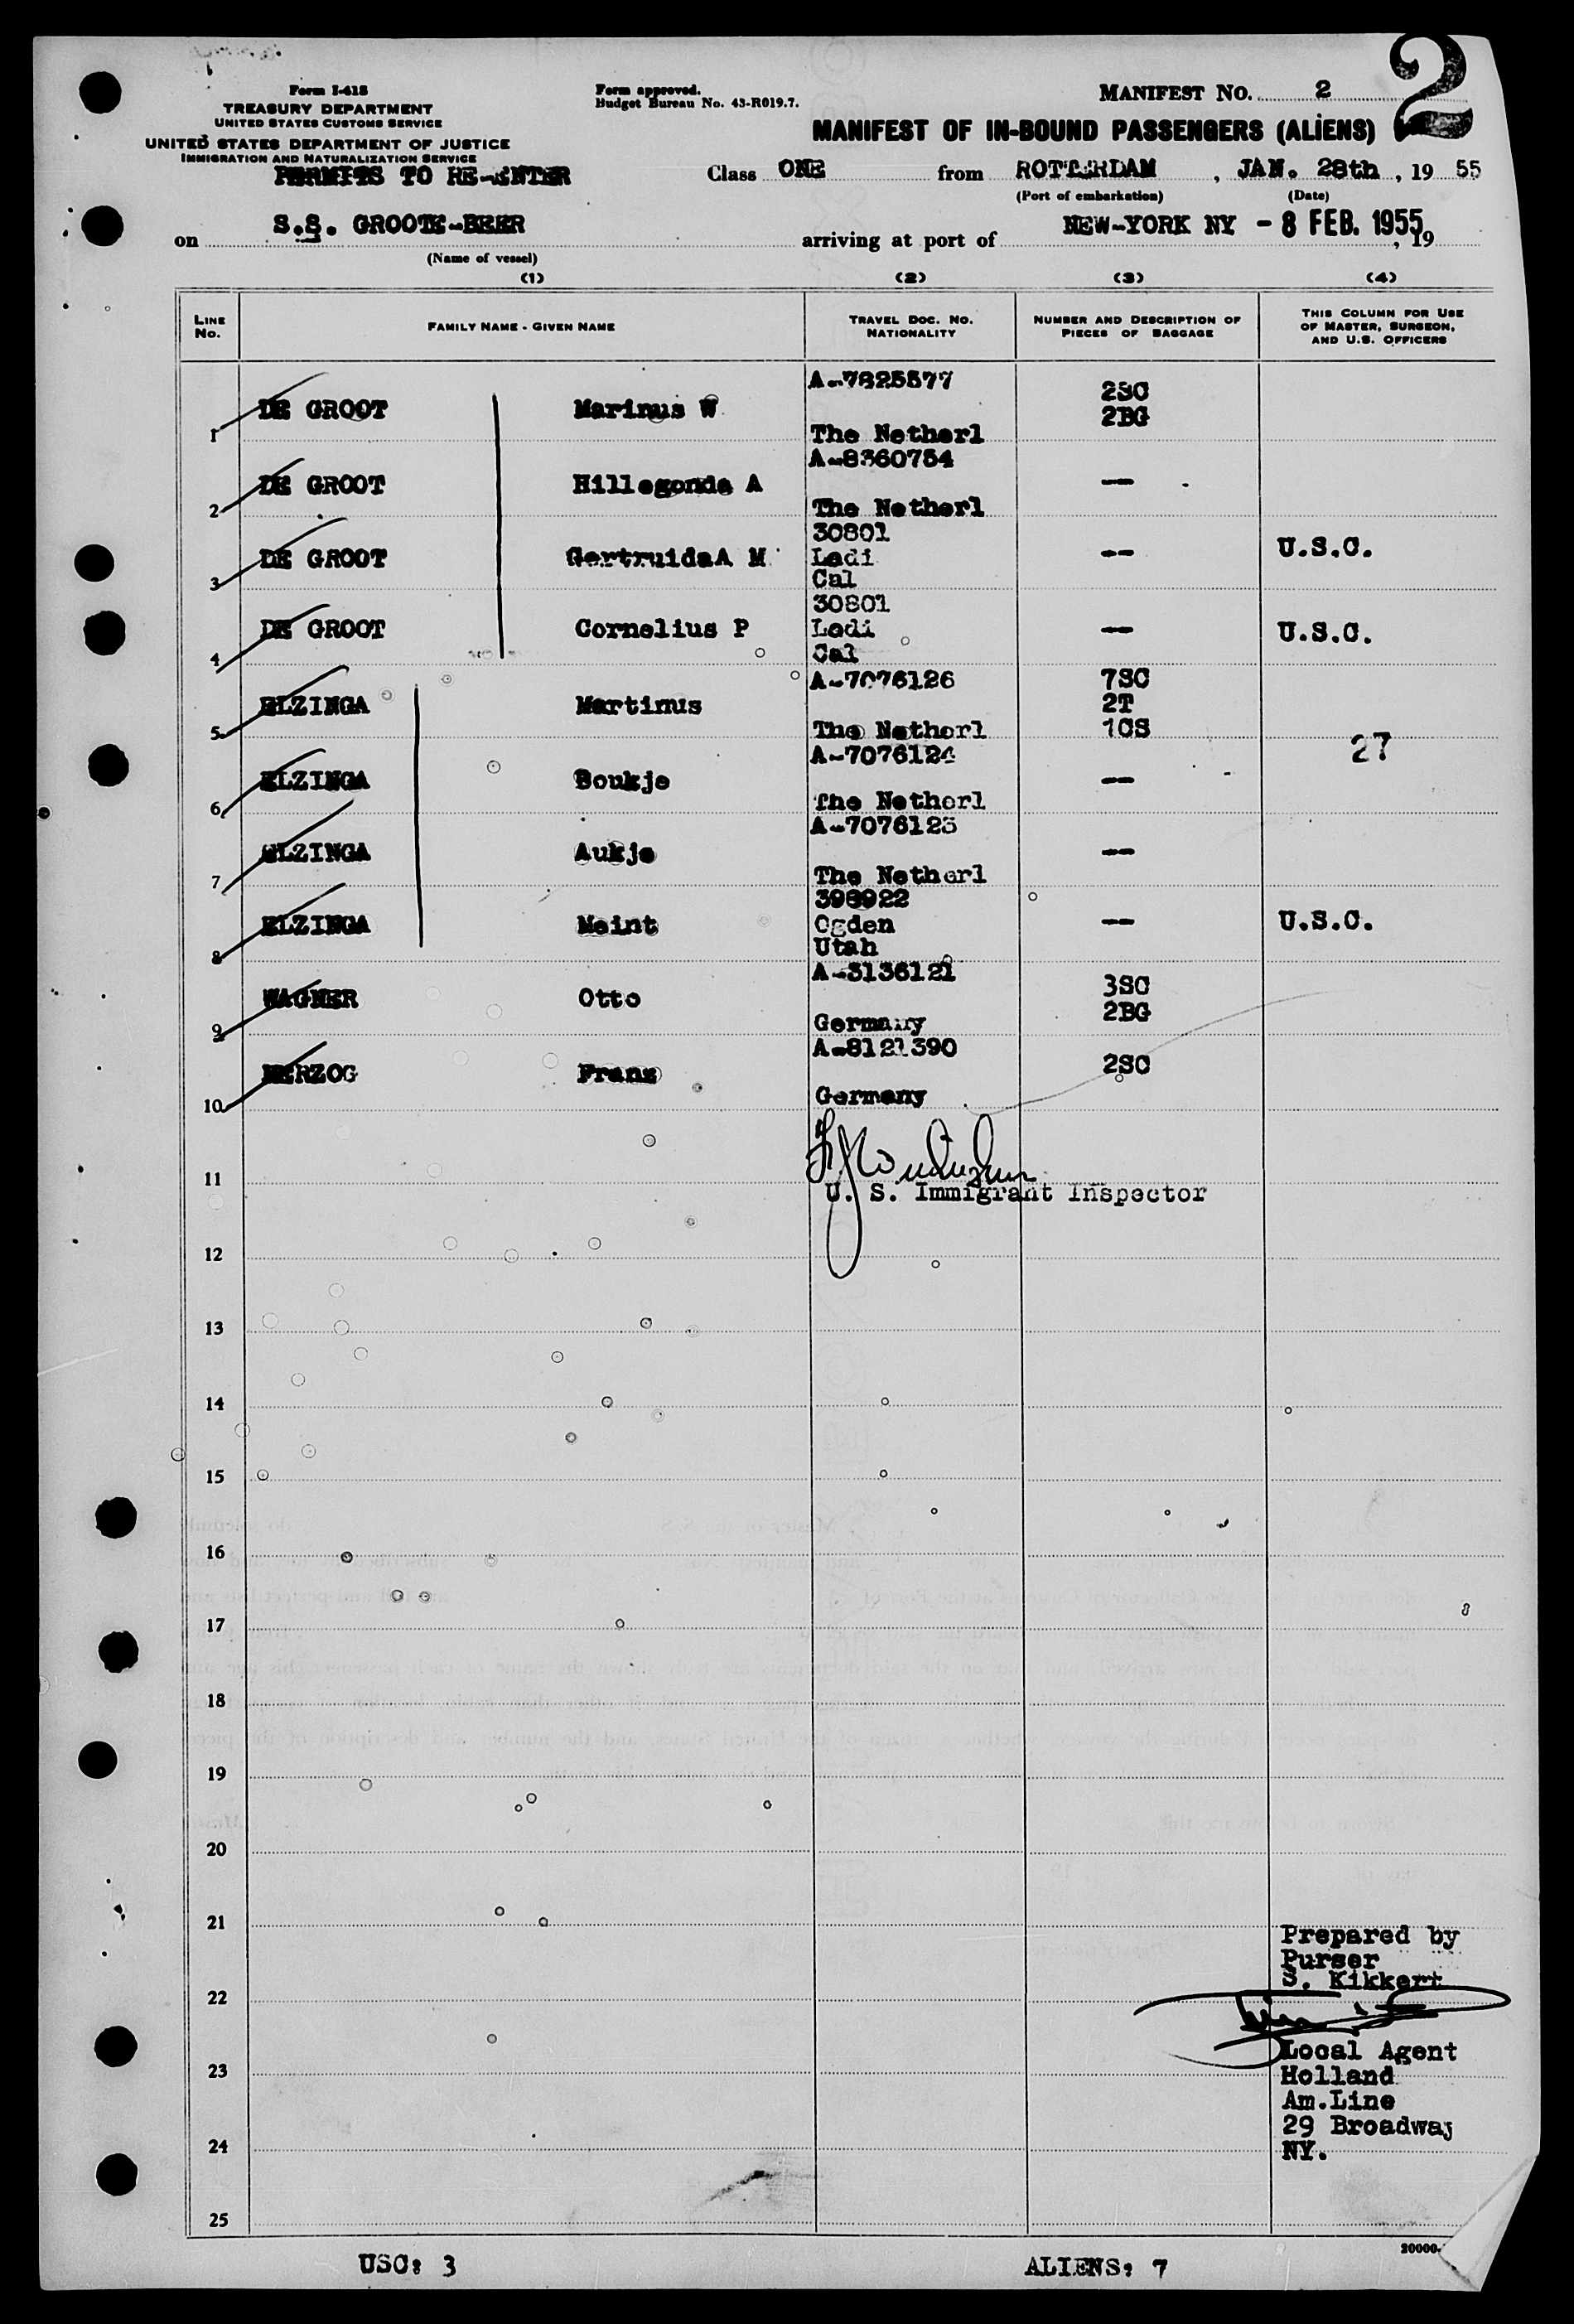 2
Form I-418
TREASURY DEPARTMENT
UNITED STATES CUSTOMS SERVICE
UNITED STATES DEPARTMENT OF JUSTICE
IMMIGRATION AND NATURALIZATION SERVICE
PERMITS TO RE-ENTER
Form approved.
Budget Bureau No. 43-R019.7.
MANIFEST NO. 2
MANIFEST OF IN-BOUND PASSENGERS (ALIENS)
Class ONE from ROTTERDAM, JAN. 28th, 19 55
(Port of embarkation) (Date)
on S.S. GROOTE-BEER arriving at port of NEW-YORK NY - 8 FEB. 1955, 19
(Name of vessel)
(1) (2) (3) (4)
LINE No. FAMILY NAME - GIVEN NAME TRAVEL DOC. NO. NATIONALITY NUMBER AND DESCRIPTION OF PIECES OF BAGGAGE THIS COLUMN FOR USE OF MASTER, SURGEON, AND U.S. OFFICERS
1 DE GROOT Marinus W A-7825577 The Netherl 2SC 2BG
2 DE GROOT Hillegonda A A-8360754 The Netherl —
3 DE GROOT GertruidaA M 30801 Lodi Cal — U.S.C.
4 DE GROOT Cornelius P 30801 Lodi Cal — U.S.C.
5 ELZINGA Martinus A-7076126 The Netherl 7SC 2T 1CS
27
6 ELZINGA Boukje A-7076124 The Netherl —
7 ELZINGA Aukje A-7076125 The Netherl —
8 ELZINGA Meint 398922 Ogden Utah — U.S.C.
9 WAGNER Otto A-3136121 Germany 3SC 2BG
10 HERZOG Franz A-8121390 Germany 2SC
11
U. S. Immigrant Inspector
12
13
14
15
16
17
18
19
20
21
Prepared by
Purser
S. Kikkert
22
Local Agent
23
Holland
Am.Line
29 Broadway
24
NY.
25
20000-
USC: 3 ALIENS: 7